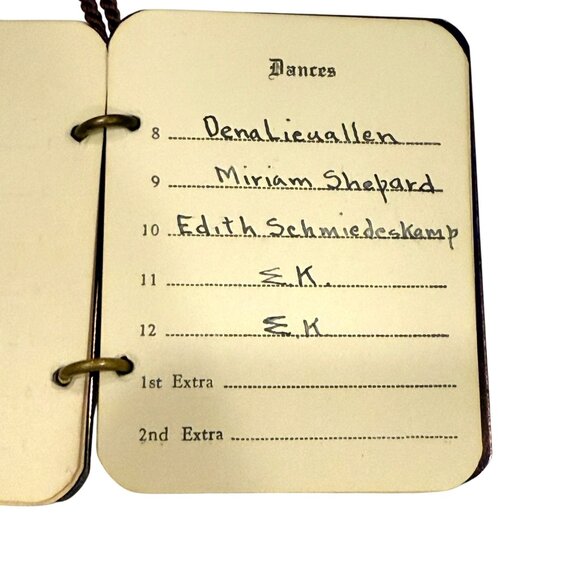 Dances
8 Dena Lieuallen
9 Miriam Shepard
10 Edith Schmiedeskamp
11 E.K.
12 E.K
1st Extra
2nd Extra